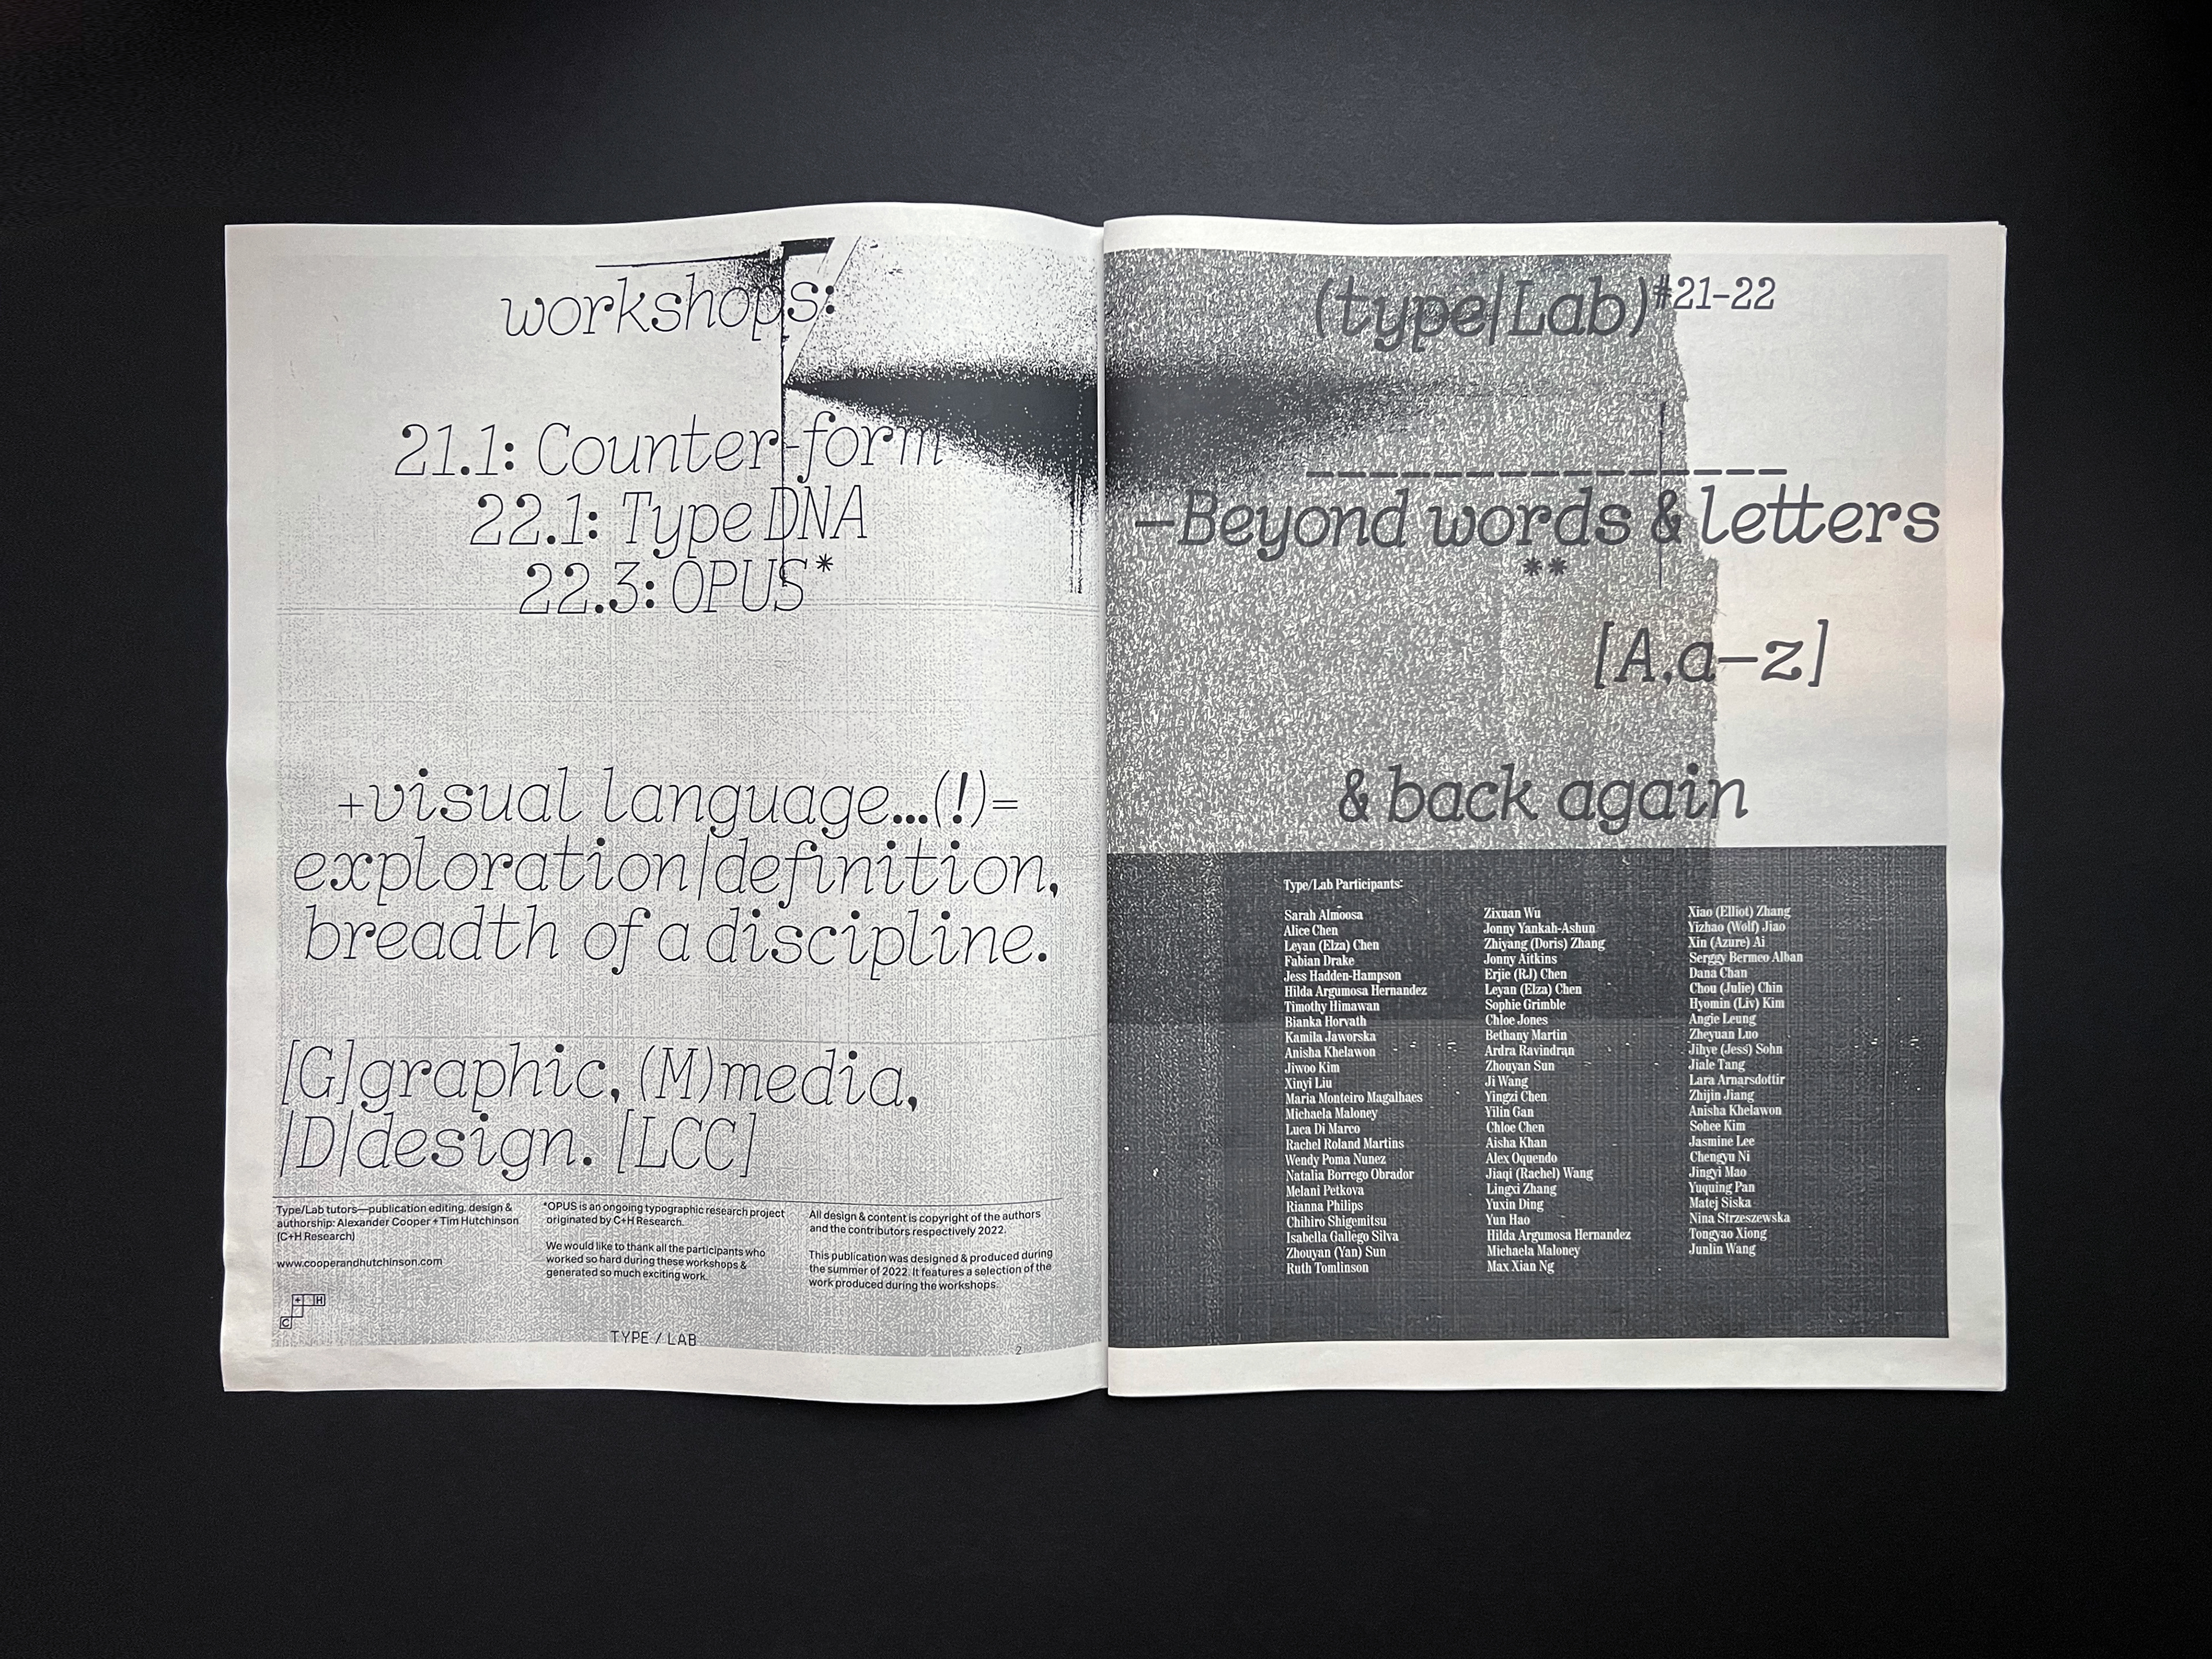 workshops:
21.1: Counter-form
22.1: Type DNA
22.3: OPUS*
+visual language...(!)=
exploration|definition,
breadth of a discipline.
[G]graphic, (M)media,
|D|design. [LCC]
Type/Lab tutors—publication editing, design &
authorship: Alexander Cooper + Tim Hutchinson
(C+H Research)
www.cooperandhutchinson.com
+ H
C
*OPUS is an ongoing typographic research project
originated by C+H Research.
We would like to thank all the participants who
worked so hard during these workshops &
generated so much exciting work.
All design & content is copyright of the authors
and the contributors respectively 2022.
This publication was designed & produced during
the summer of 2022. It features a selection of the
work produced during the workshops.
TYPE / LAB
2
(type|Lab)#21–22
—Beyond words & letters
**
[A,a—z]
& back again
Type/Lab Participants:
Sarah Almoosa
Alice Chen
Leyan (Elza) Chen
Fabian Drake
Jess Hadden-Hampson
Hilda Argumosa Hernandez
Timothy Himawan
Bianka Horvath
Kamila Jaworska
Anisha Khelawon
Jiwoo Kim
Xinyi Liu
Maria Monteiro Magalhaes
Michaela Maloney
Luca Di Marco
Rachel Roland Martins
Wendy Poma Nunez
Natalia Borrego Obrador
Melani Petkova
Rianna Philips
Chihiro Shigemitsu
Isabella Gallego Silva
Zhouyan (Yan) Sun
Ruth Tomlinson
Zixuan Wu
Jonny Yankah-Ashun
Zhiyang (Doris) Zhang
Jonny Aitkins
Erjie (RJ) Chen
Leyan (Elza) Chen
Sophie Grimble
Chloe Jones
Bethany Martin
Ardra Ravindran
Zhouyan Sun
Ji Wang
Yingzi Chen
Yilin Gan
Chloe Chen
Aisha Khan
Alex Oquendo
Jiaqi (Rachel) Wang
Lingxi Zhang
Yuxin Ding
Yun Hao
Hilda Argumosa Hernandez
Michaela Maloney
Max Xian Ng
Xiao (Elliot) Zhang
Yizhao (Wolf) Jiao
Xin (Azure) Ai
Serggy Bermeo Alban
Dana Chan
Chou (Julie) Chin
Hyomin (Liv) Kim
Angie Leung
Zheyuan Luo
Jihye (Jess) Sohn
Jiale Tang
Lara Arnarsdottir
Zhijin Jiang
Anisha Khelawon
Sohee Kim
Jasmine Lee
Chengyu Ni
Jingyi Mao
Yuquing Pan
Matej Siska
Nina Strzeszewska
Tongyao Xiong
Junlin Wang